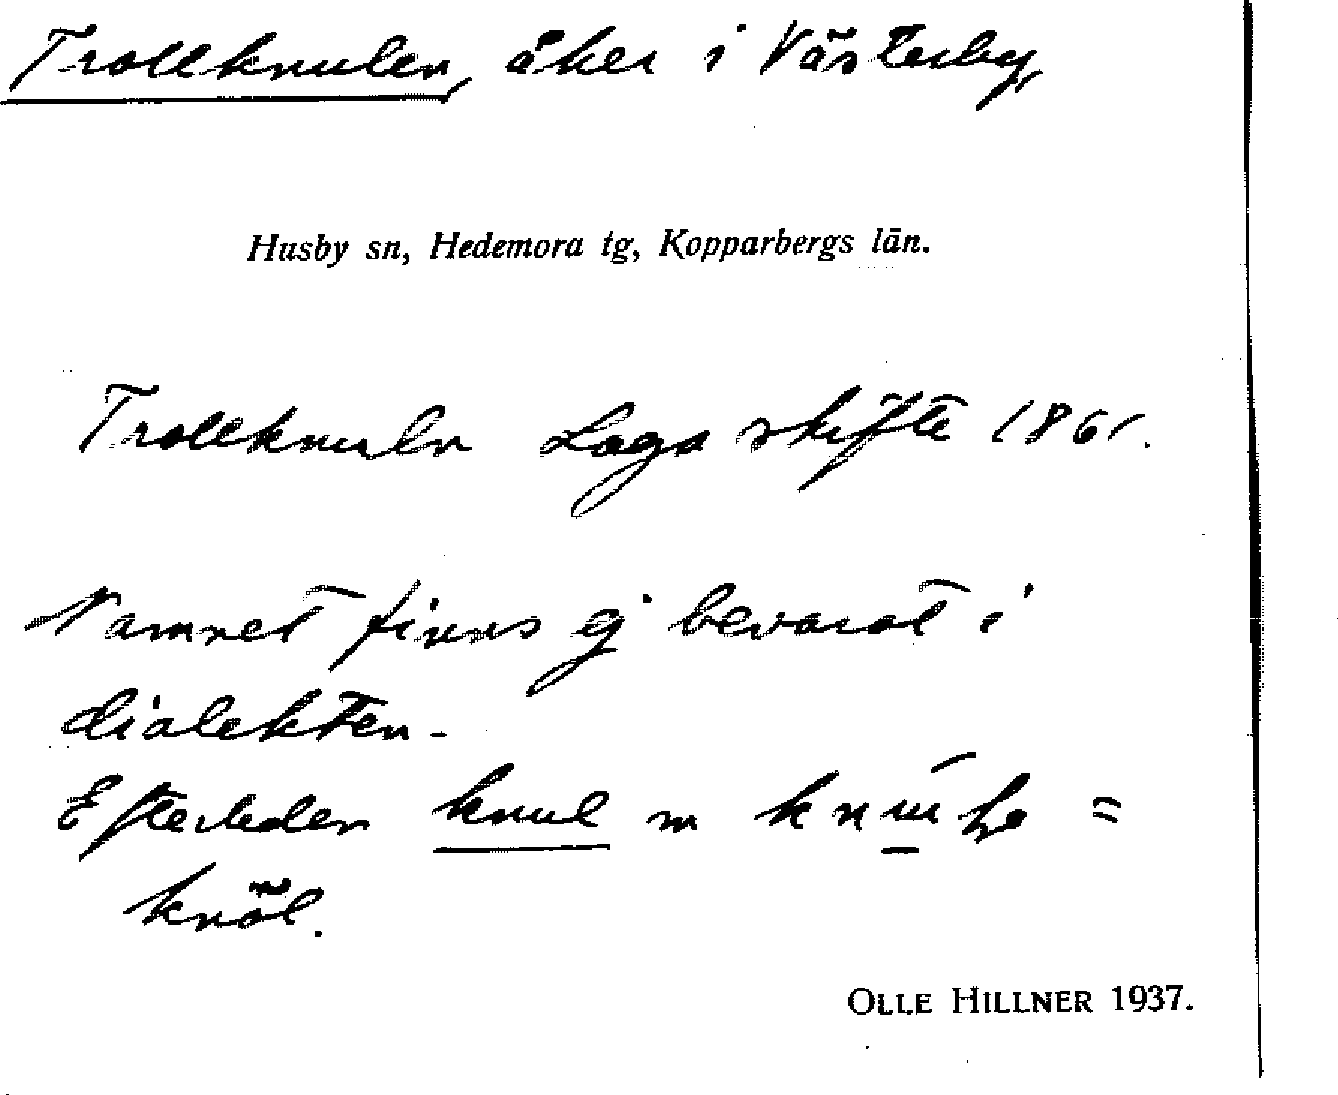 Trollknulen, åker i Västerby,
Husby sn, Hedemora tg, Kopparbergs län.
Trollknuln Laga skifte 1861.
Namnet finns ej bevarat i
dialekten.
Efterleden knul m =
knöl.
OLLE HILLNER 1937.